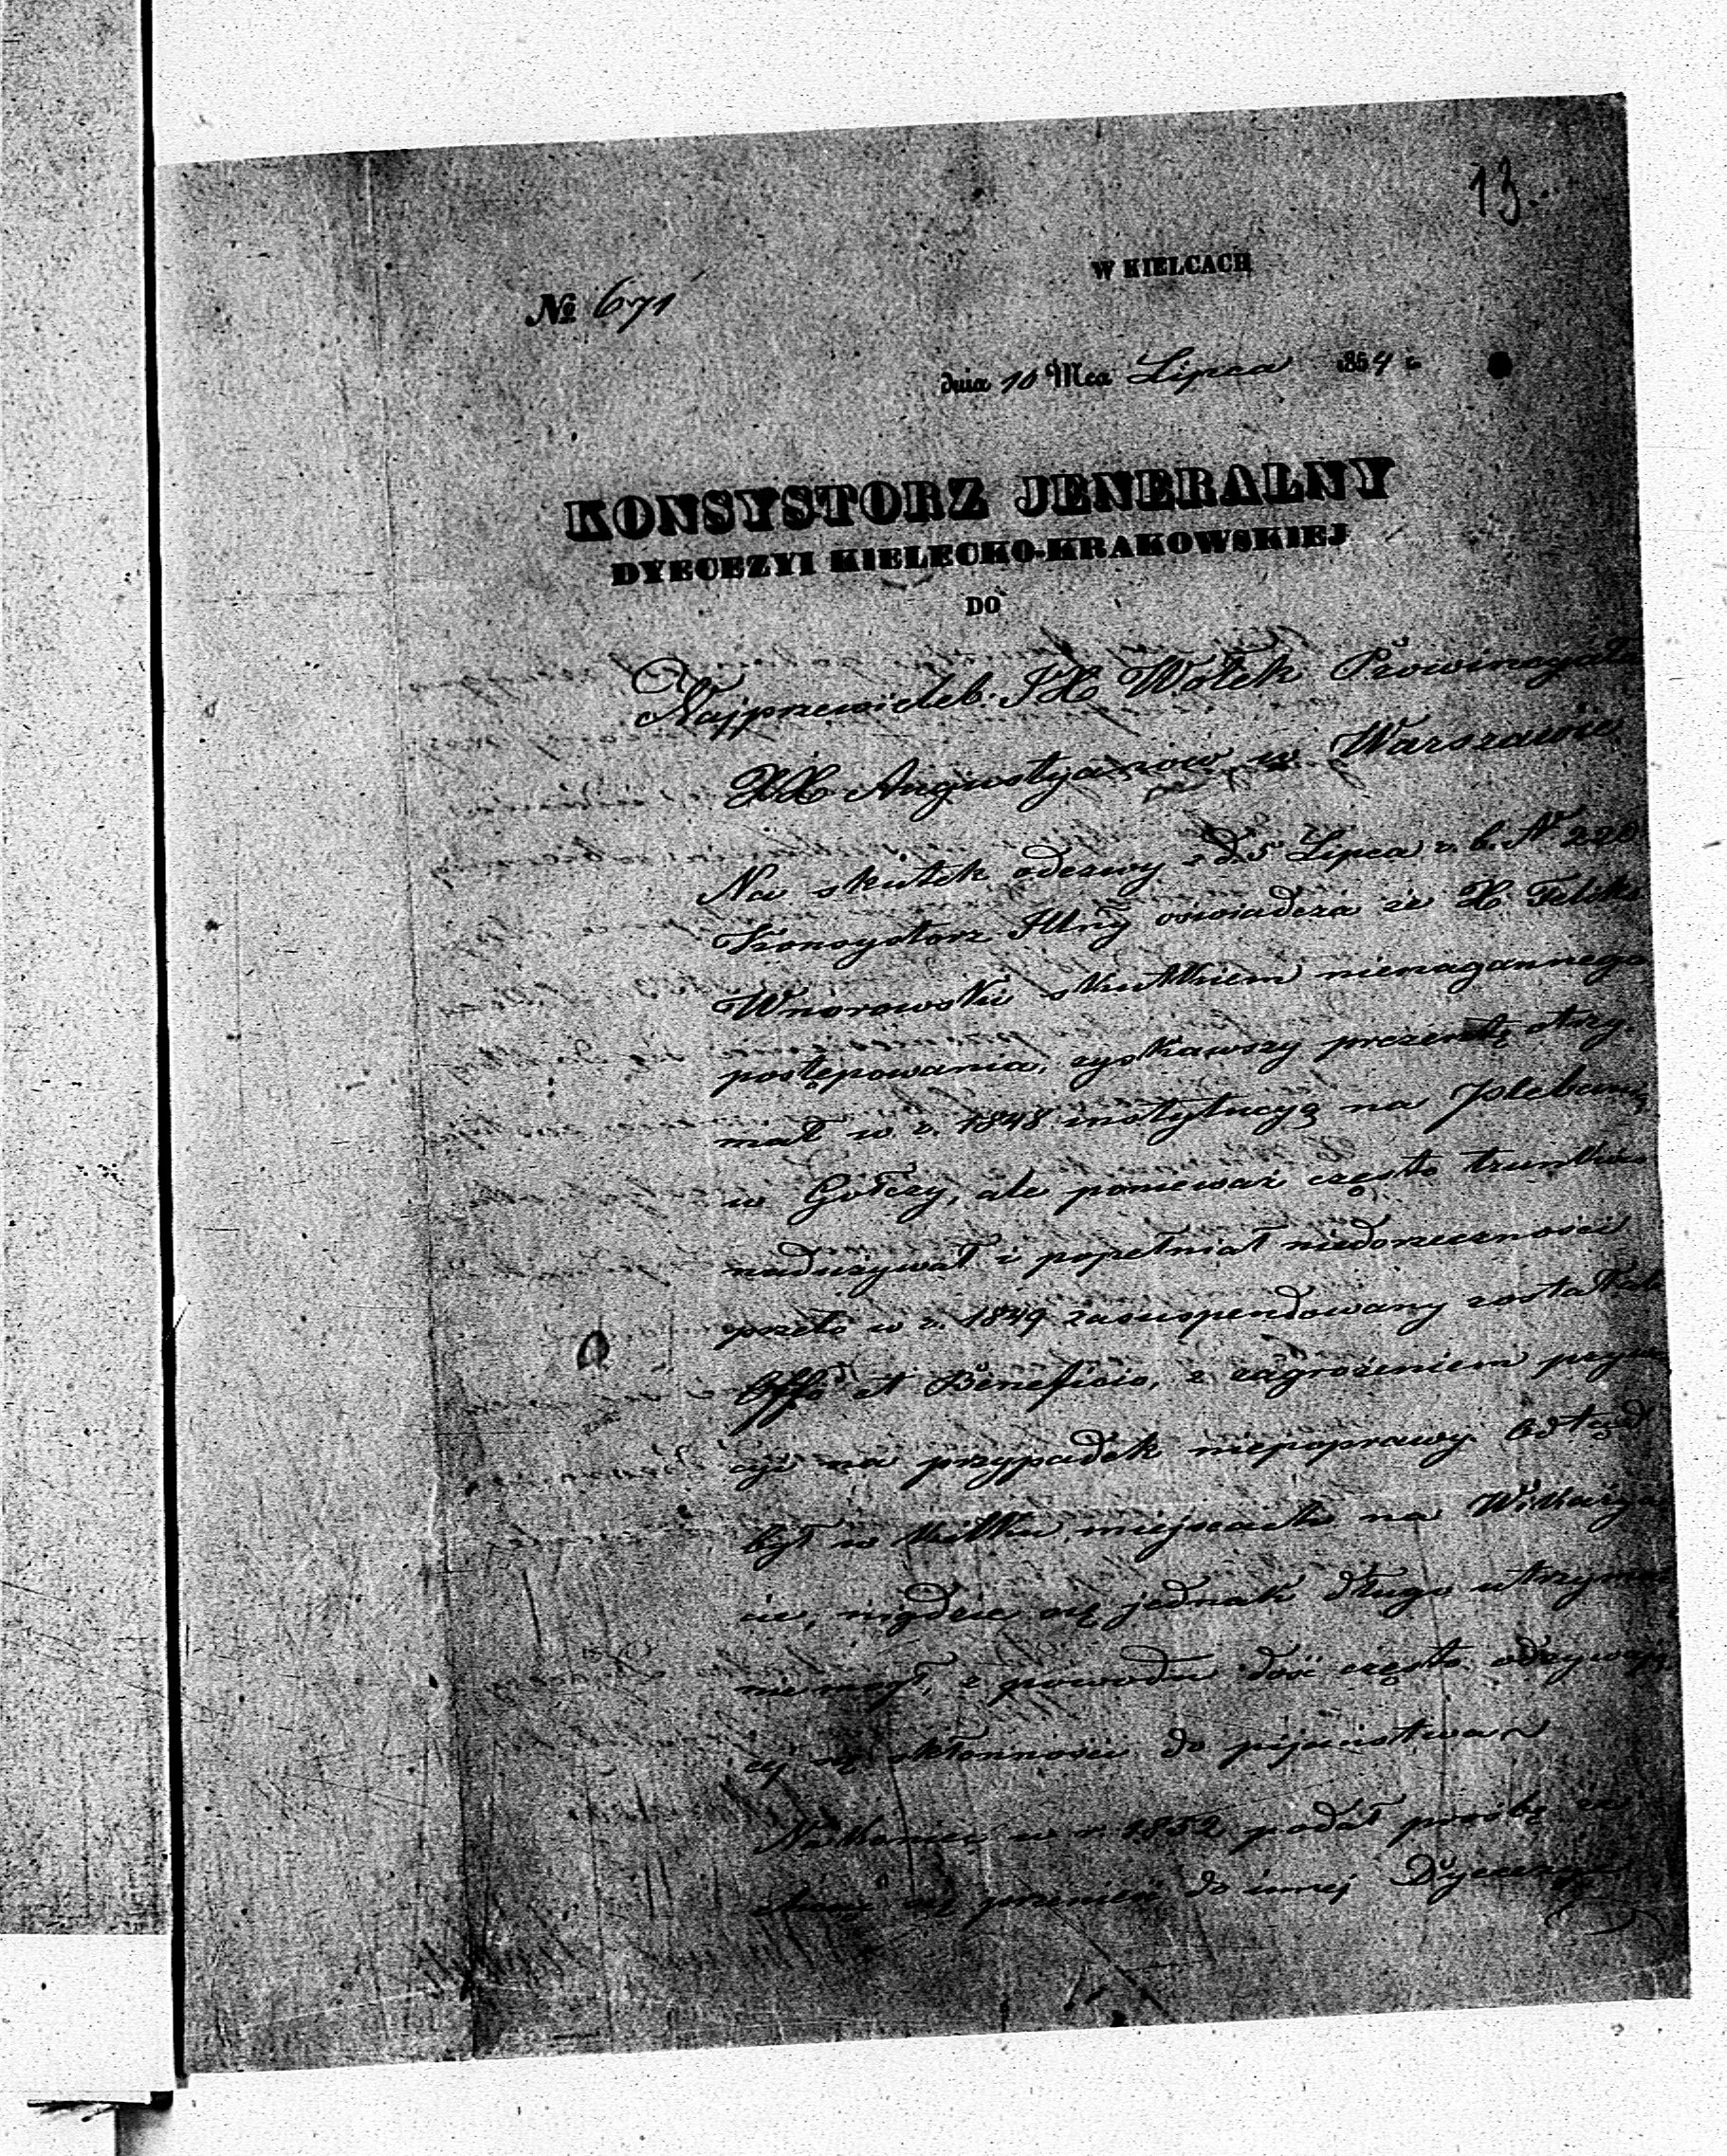 13.
W KIELCACH
№ 671
dnia 10 Mca Lipca 1854 r.
KONSYSTORZ JENERALNY
DYECEZYI KIELECKO-KRAKOWSKIEJ
DO
Najprzewieleb. JX Wołek Prowincyała
XX Augustyanow w Warszawie
Na skutek odezwy z d. 5 Lipca r. b. N 220
Konsystorz Jlny oświadcza że X. Feliks
Wnorowski skutkiem nienagannego
postępowania, zyskawszy prezentę otrzy-
mał w r. 1848 instytucyą na Plebanią
w Gołczy, ale ponieważ często trunków
nadużywał i popełniał niedorzeczności
przeto w r. 1849 zasuspendowany został ab
Offo et Beneficio, z zagrożeniem
cyi na przypadek niepoprawy. Odtąd
był w kilku miejscach na Wikarya-
cie, nigdzie się jednak długo utrzymać
nie mógł, z powodu dość często odzywają
cej się skłonności do pijaństwa
Nakoniec w r. 1852 podał prośbę że
chce się przenieść do innej Dyecezyi